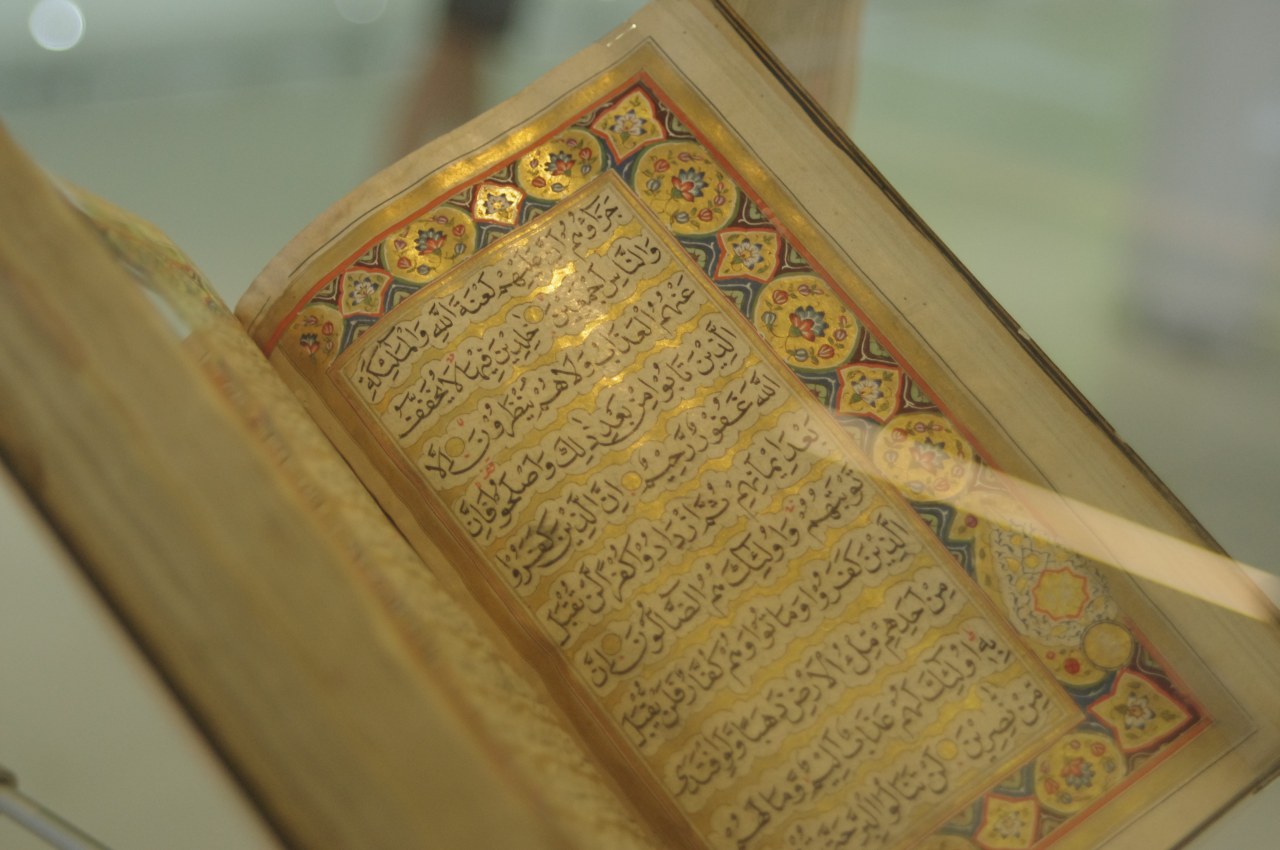 جَزَاؤُهُمْ اَنَّ عَلَيْهِمْ لَعْنَةَ اللّٰهِ وَالْمَلٰئِكَةِ
وَالنَّاسِ اَجْمَعِينَ خٰلِدِينَ فِيهَا لَا يُخَفَّفُ
عَنْهُمُ الْعَذَابُ وَلَا هُمْ يُنْظَرُونَ اِلَّا
الَّذِينَ تَابُوا مِنْ بَعْدِ ذٰلِكَ وَاَصْلَحُوا فَاِنَّ
اللّٰهَ غَفُورٌ رَحِيمٌ اِنَّ الَّذِينَ كَفَرُوا
بَعْدَ اِيمَانِهِمْ ثُمَّ ازْدَادُوا كُفْرًا لَنْ تُقْبَلَ
تَوْبَتُهُمْ وَاُولٰئِكَ هُمُ الضَّالُّونَ اِنَّ
الَّذِينَ كَفَرُوا وَمَاتُوا وَهُمْ كُفَّارٌ فَلَنْ يُقْبَلَ
مِنْ اَحَدِهِمْ مِلْءُ الْاَرْضِ ذَهَبًا وَلَوِ افْتَدٰى
بِهِ اُولٰئِكَ لَهُمْ عَذَابٌ اَلِيمٌ وَمَا لَهُمْ
مِنْ نٰصِرِينَ لَنْ تَنَالُوا الْبِرَّ حَتّٰى